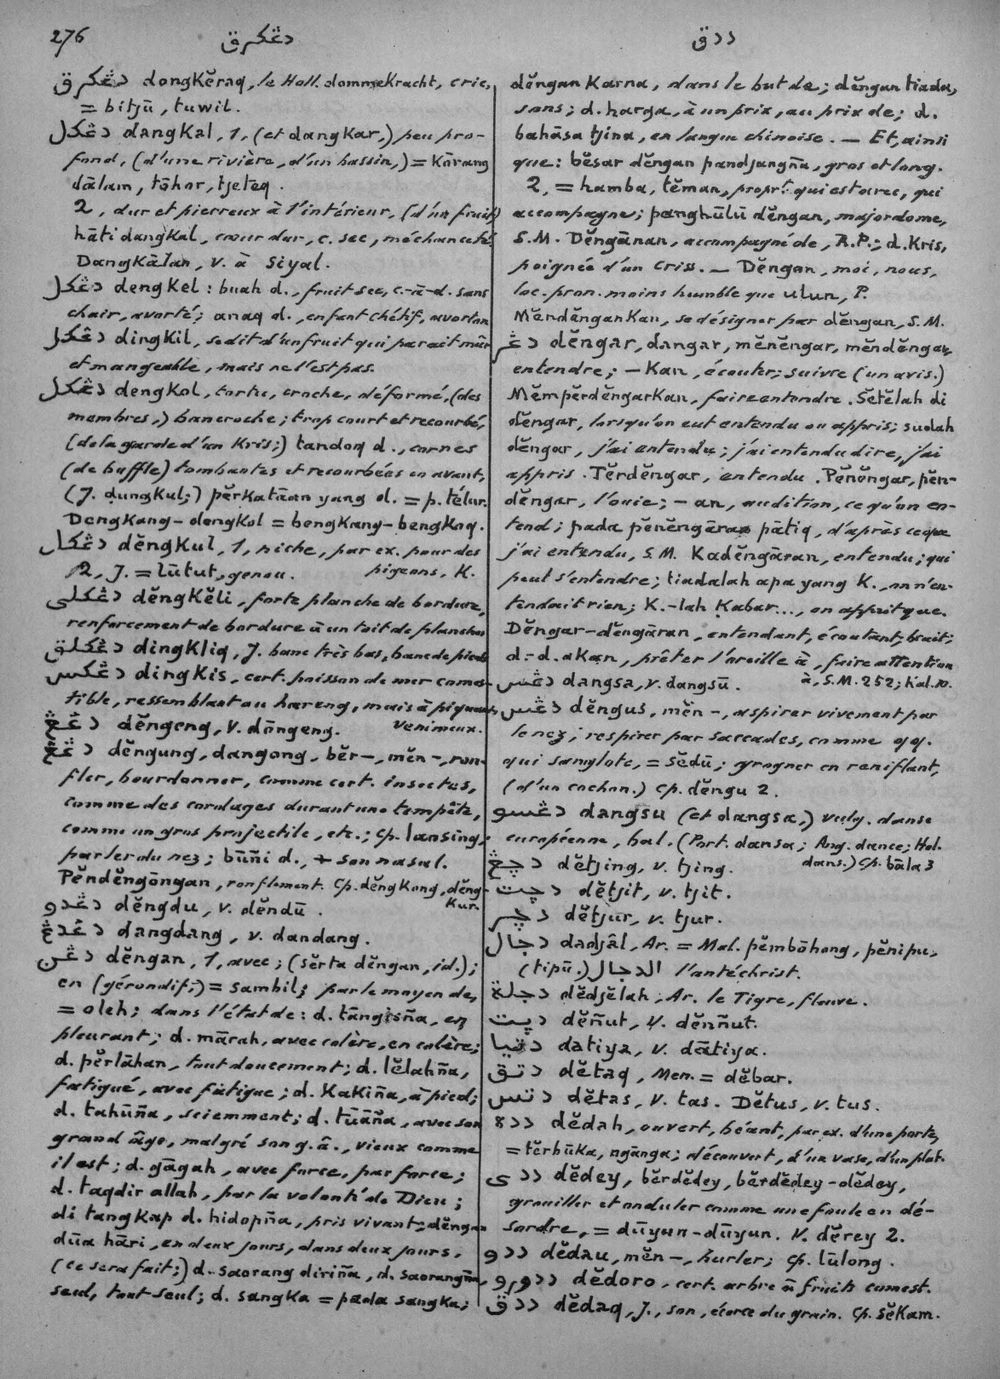 276
دڠکرق
ددق
دڠکرق dongkĕraq, le Holl. dommekracht, cric,
= bitjū, tuwil.
دڠکل dangkal, 1, (et dangkar,) peu pro-
fond, (d'une rivière, d'un bassin,) = kārang
dālam, tōhor, tjeteq.
2, dur et pierreux à l'intérieur, (d'un fruit)
hāti dangkal, cœur dur, c. sec, méchanceté
Dangkālan, v. à siyal.
دڠکل dengkel : buah d., fruit sec, c.-à-d. sans
chair, avorté; anaq d., enfant chétif, avorton
دڠکل dingkil, se dit d'un fruit qui parait mûr
et mangeable, mais ne l'est pas.
دڠکل dengkol, tortu, croche, déformé, (des
membres,) bancroche; trop court et recourbé,
(de la garde d'un kris;) tandoq d., cornes
(de buffle) tombantes et recourbées en avant,
(J. dungkul;) pĕrkatāan yang d. = p. télur.
Dengkang-dengkol = bengkang-bengkoq.
دڠکل dĕngkul, 1, niche, par ex. pour des
pigeons, K.
2, J. = lūtut, genou.
دڠکلی dĕngkĕli, forte planche de bordure,
renforcement de bordure à un toit de planches
دڠکلق dingkliq, J. banc très bas, banc de pieds
دڠکس dingkis, cert. poisson de mer comes-
tible, ressemblant au hareng, mais à piquants
venimeux.
دڠڠ dĕngeng, v. dōngeng.
دڠڠ dĕngung, dangong, bĕr-, mĕn-, ron-
fler, bourdonner, comme cert. insectes,
comme des cordages durant une tempête,
comme un gros projectile, etc.; cp. lansing;
parler du nez; būñi d., + son nasal.
Pĕndĕngōngan, ronflement. Cp. dĕngkong, dĕng-
kur.
دڠدو dĕngdu, v. dĕndū.
دڠدڠ dangdang, v. dandang.
دڠن dĕngan, 1, avec; (sĕrta dĕngan, id.);
en (gérondif;) = sambil; par le moyen de,
= oleh; dans l'état de : d. tāngisña, en
pleurant; d. mārah, avec colère, en colère;
d. pĕrlāhan, tout doucement; d. lĕlahña,
fatigué, avec fatigue; d. kakiña, à pied;
d. tahūña, sciemment; d. tūāña, avec son
grand âge, malgré son g. â., vieux comme
il est; d. gāgah, avec force, par force;
d. taqdir allah, par la volonté de Dieu;
di tangkap d. hidopña, pris vivant; dĕngan
dūa hāri, en deux jours, dans deux jours,
(ce sera fait;) d. saorang diriña, d. saorangña,
seul, tout seul; d. sangka = pada sangka;
dĕngan karna, dans le but de; dĕngan tiada,
sans; d. harga, à un prix, au prix de; d.
bahāsa tjina, en langue chinoise. — Et, ainsi
que : bĕsar dĕngan pandjangña, gros et long.
2, = hamba, tĕman, propr.t qui est avec, qui
accompagne; panghūlū dĕngan, majordome,
S.M. Dĕngānan, accompagné de, R.P.; d. kris,
poignée d'un criss. — Dĕngan, moi, nous,
loc. pron. moins humble que ulun, P.
Mĕndĕngankan, se désigner par dĕngan, S.M.
دڠر dĕngar, dangar, mĕnĕngar, mĕndĕngar,
entendre; — kan, écouter; suivre (un avis.)
Mĕmpĕrdĕngarkan, faire entendre. Sĕtĕlah di
dĕngar, lorsqu'on eut entendu ou appris; sudah
dĕngar, j'ai entendu; j'ai entendu dire, j'ai
appris. Tĕrdĕngar, entendu. Pĕnĕngar, pĕn-
dĕngar, l'ouïe; — an, audition, ce qu'on en-
tend; pada pĕnĕngāran pātiq, d'après ce que
j'ai entendu, S.M. Kadĕngāran, entendu; qui
peut s'entendre; tiadalah apa yang k., on n'en-
tendait rien; k.-lah kabar..., on apprit que.
Dĕngar-dĕngāran, entendant, écoutant, bruit;
d.-d. akan, prêter l'oreille à, faire attention
à, S.M. 252; Kal. 10.
دڠس dangsa, v. dangsū.
دڠس dĕngus, mĕn-, aspirer vivement par
le nez; respirer par saccades, comme qq.
qui sanglote, = sĕdū; grogner en reniflant,
(d'un cochon.) Cp. dĕngu 2.
دڠسو dangsu (et dangsa,) vulg. danse
européenne, bal. (Port. dansa; Ang. dance; Hol.
dans.) Cp. bāla 3
دچڠ dĕtjing, v. tjing.
دچت dĕtjit, v. tjit.
دچر dĕtjur, v. tjur.
دجال dadjâl, Ar. = Mal. pĕmbōhong, pĕnipu,
(tipū.) الدجال l'antéchrist.
دجلة dĕdjĕlah, Ar. le Tigre, fleuve.
دڽت dĕñut, v. dĕnñut.
دتيا datiya, v. dātiya.
دتق dĕtaq, Men. = dĕbar.
دتس dĕtas, v. tas. Dĕtus, v. tus.
دده dĕdah, ouvert, béant, par ex. d'une porte,
= tĕrbūka, ngānga; découvert, d'un vase, d'un plat.
ددی dĕdey, bĕrdĕdey, bĕrdĕdey-dĕdey,
grouiller et onduler comme une foule en dé-
sordre, = dūyun-dūyun. V. dĕrey 2.
ددو dĕdau, mĕn-, hurler; cp. lūlong.
ددورو dĕdoro, cert. arbre à fruits comest.
ددق dĕdaq, J., son, écorce du grain. Cp. sĕkam.